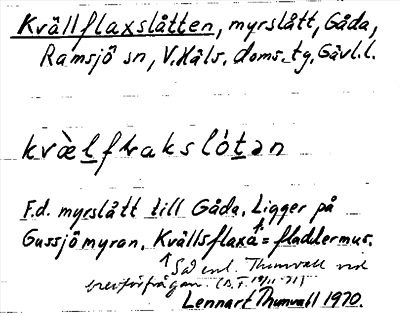 Kvällflaxslåtten, myrslått, Gåda,
Ramsjö sn, V. Häls. doms. tg, Gävl.l.
kvæ̀lflakslótən
F.d. myrslått till Gåda. Ligger på
Gussjömyran. Kvällsflaxa = fladdermus.
↑ Så enl. Thunvall vid
brevförfrågan. (D.T. 19/11 -71)
Lennart Thunvall 1970.